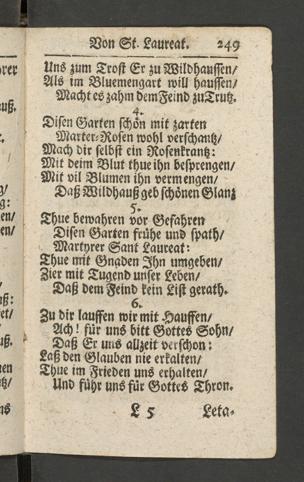 Von St. Laureat. 249
Uns zum Trost Er zu Wildhaussen/
Als im Bluemengart will haussen/
Macht es zahm dem Feind zu Trutz.
4.
Disen Garten schön mit zarten
Marter-Rosen wohl verschantz/
Mach dir selbst ein Rosenkrantz:
Mit deim Blut thue ihn besprengen/
Mit vil Blumen ihn vermengen/
Daß Wildhauß geb schönen Glantz
5.
Thue bewahren vor Gefahren
Disen Garten frühe und spath/
Martyrer Sant Laureat:
Thue mit Gnaden Ihn umgeben/
Zier mit Tugend unser Leben/
Daß dem Feind kein List gerath.
6.
Zu dir lauffen wir mit Hauffen/
Ach! für uns bitt Gottes Sohn/
Daß Er uns allzeit verschon:
Laß den Glauben nie erkalten/
Thue im Frieden uns erhalten/
Und führ uns für Gottes Thron.
L 5 Leta-